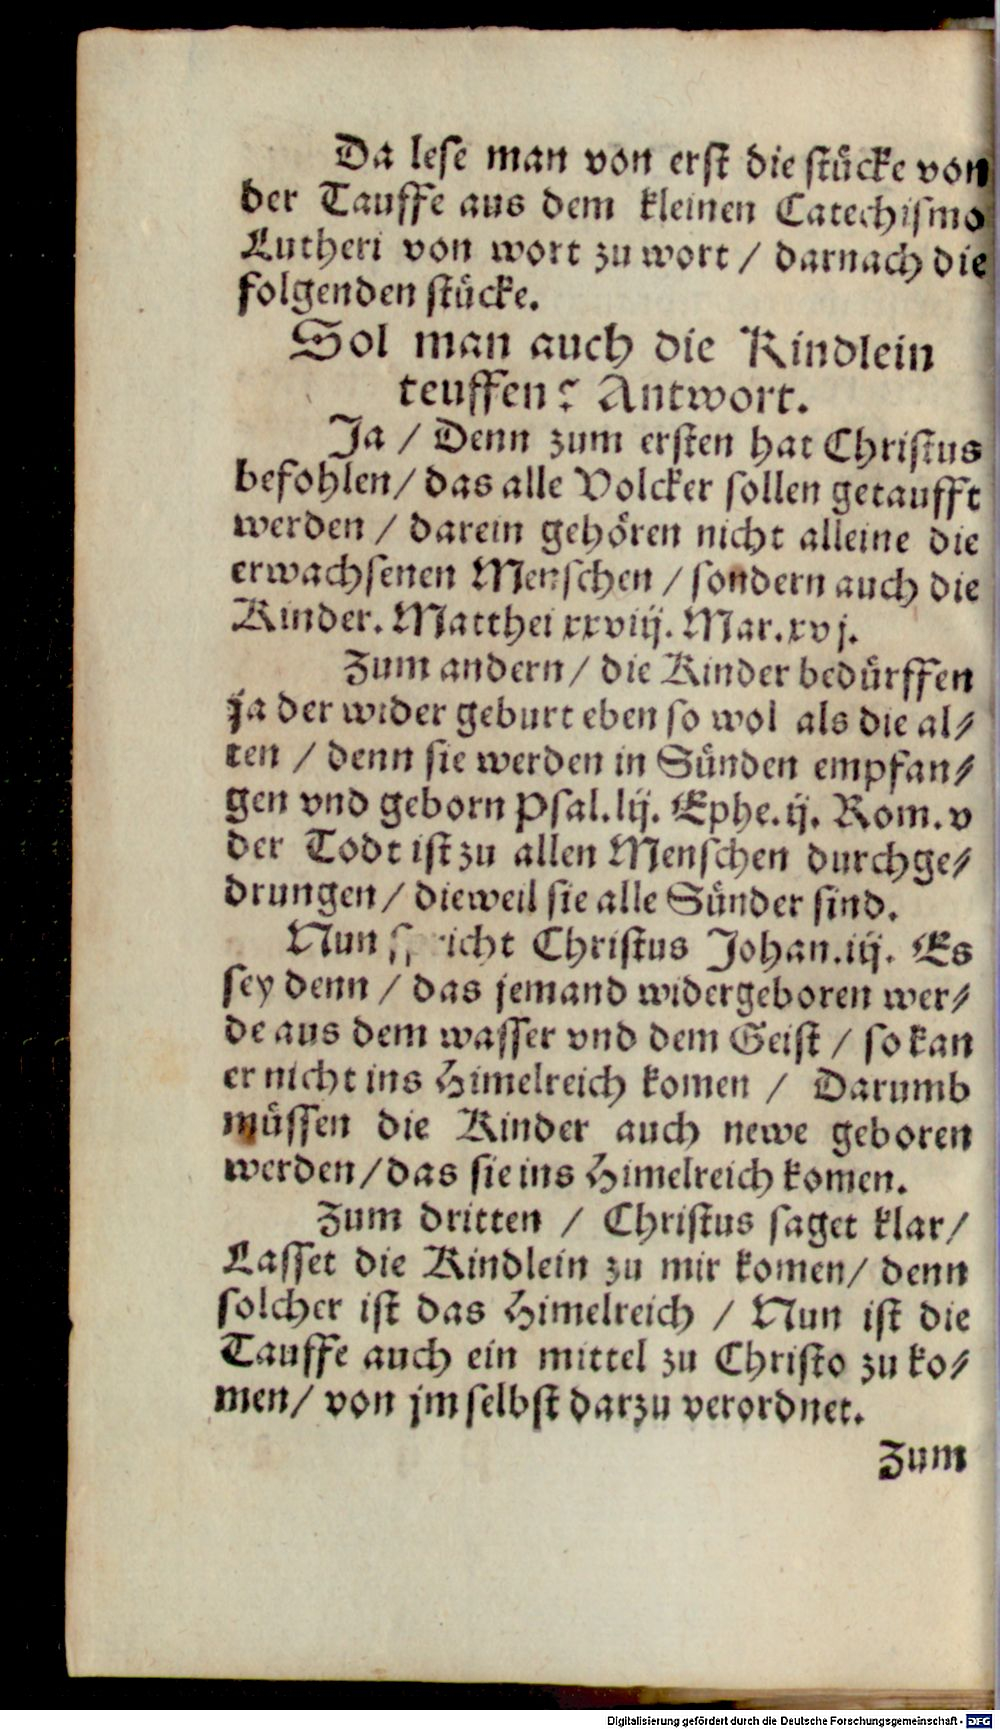 Da lese man von erst die stücke von
der Tauffe aus dem kleinen Catechismo
Lutheri von wort zu wort / darnach die
folgenden stücke.
Sol man auch die Kindlein
teuffen? Antwort.
Ja / Denn zum ersten hat Christus
befohlen / das alle Volcker sollen getaufft
werden / darein gehören nicht alleine die
erwachsenen Menschen / sondern auch die
Kinder. Matthei xxviij. Mar. xvj.
Zum andern / die Kinder bedürffen
ja der wider geburt eben so wol als die al⸗
ten / denn sie werden in Sünden empfan⸗
gen vnd geborn Psal. lij. Ephe. ij. Rom. v
der Todt ist zu allen Menschen durchge⸗
drungen / dieweil sie alle Sünder sind.
Nun spricht Christus Johan. iij. Es
sey denn / das jemand widergeboren wer⸗
de aus dem wasser vnd dem Geist / so kan
er nicht ins Himelreich komen / Darumb
müssen die Kinder auch newe geboren
werden / das sie ins Himelreich komen.
Zum dritten / Christus saget klar /
Lasset die Kindlein zu mir komen / denn
solcher ist das Himelreich / Nun ist die
Tauffe auch ein mittel zu Christo zu ko⸗
men / von jm selbst darzu verordnet.
Zum
Digitalisierung gefördert durch die Deutsche Forschungsgemeinschaft - DFG